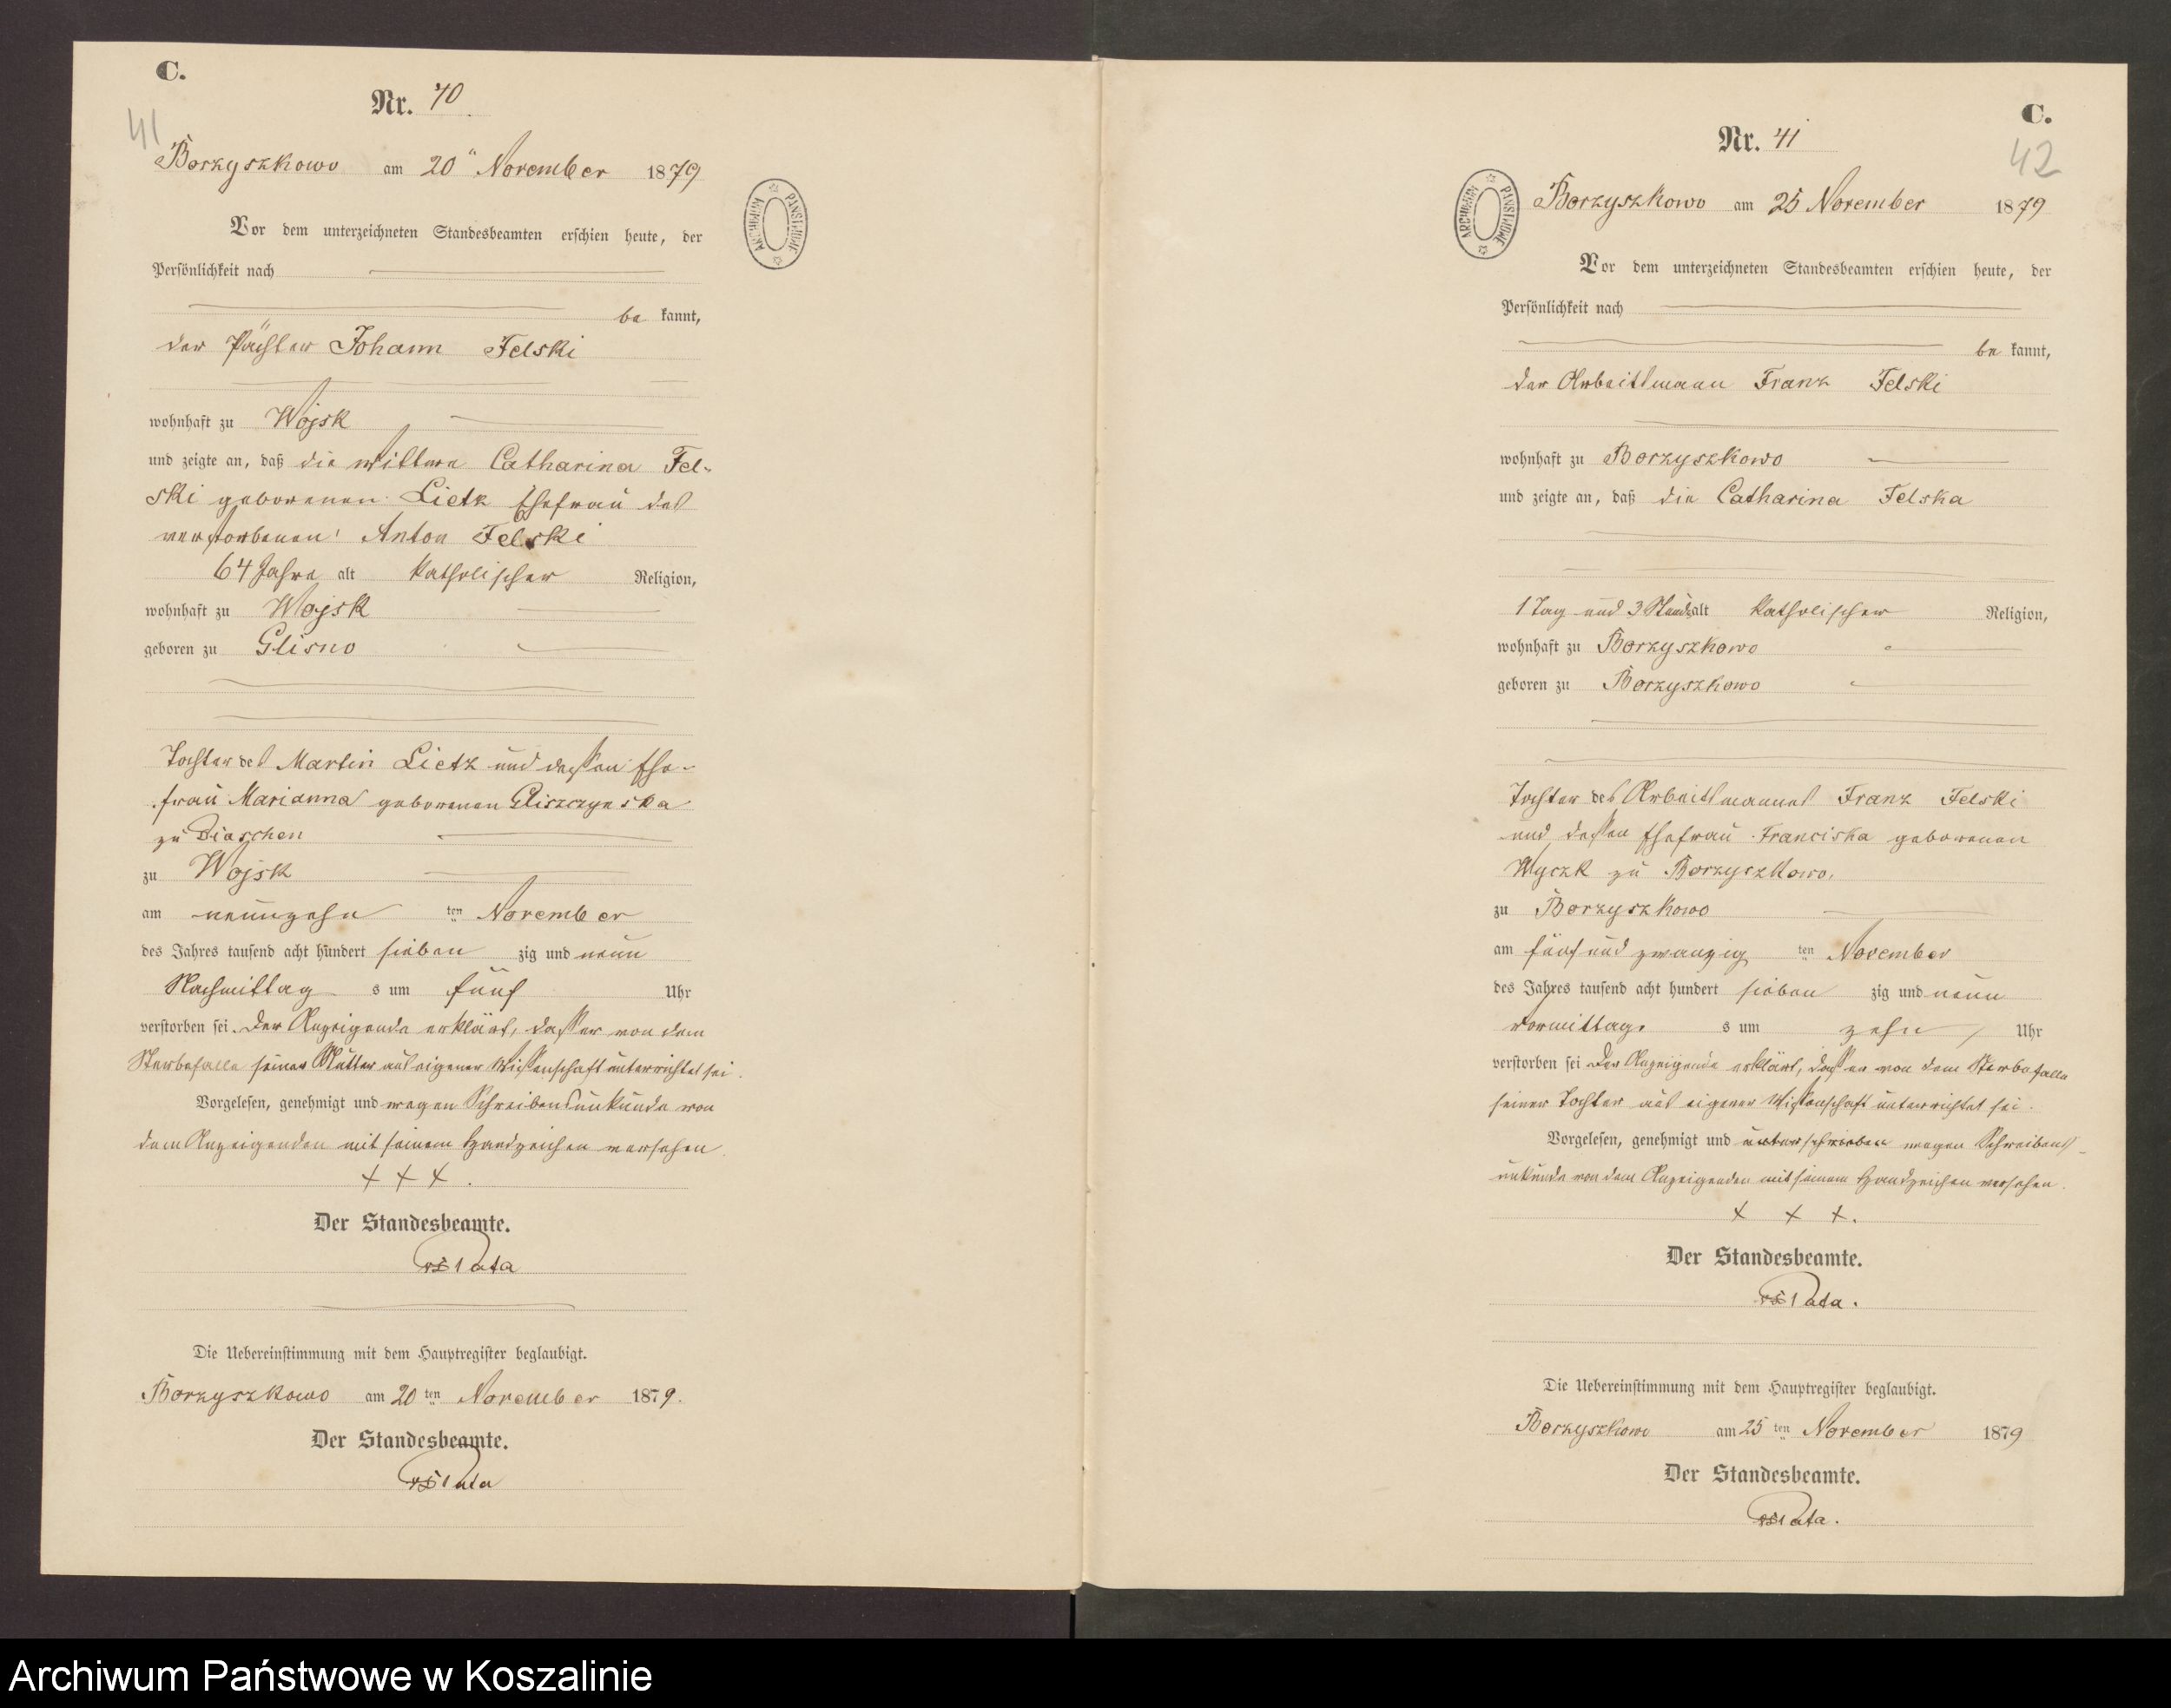 C.
Nr. 40
41
Borzyszkowo am 20ten November 1879
Vor dem unterzeichneten Standesbeamten erschien heute, der
Persönlichkeit nach
be kannt,
der Pächter Johann Felski
wohnhaft zu Wojsk
und zeigte an, daß die Wittwe Catharina Fel-
ski geborenen Lietz Ehefrau des
verstorbenen Anton Felski
64 Jahre alt katholischer Religion,
wohnhaft zu Wojsk
geboren zu Glisno
Tochter des Martin Lietz und dessen Ehe-
frau Marianna geborenen Gliszczynska
zu
zu Wojsk
am neunzehn ten November
des Jahres tausend acht hundert sieben zig und neun
Nachmittag s um fünf Uhr
verstorben sei. Der Anzeigende erklärt, daß er von dem
Sterbefalle seiner Mutter aus eigener Wissenschaft unterrichtet sei.
Vorgelesen, genehmigt und wegen Schreibensunkunde von
dem Anzeigenden mit seinem Handzeichen versehen
+ + +.
Der Standesbeamte.
Die Uebereinstimmung mit dem Hauptregister beglaubigt.
Borzyszkowo am 20ten November 1879.
Der Standesbeamte.
ARCHIWUM PAŃSTWOWE
C.
Nr. 41
42
Borzyszkowo am 25 November 1879
Vor dem unterzeichneten Standesbeamten erschien heute, der
Persönlichkeit nach
be kannt,
der Arbeitsmann Franz Felski
wohnhaft zu Borzyszkowo
und zeigte an, daß die Catharina Felska
1 Tag und 3 Stunde alt katholischer Religion,
wohnhaft zu Borzyszkowo
geboren zu Borzyszkowo
Tochter des Arbeitsmannes Franz Felski
und dessen Ehefrau Franciska geborenen
Wyczk zu Borzyszkowo.
zu Borzyszkowo
am fünf und zwanzig ten November
des Jahres tausend acht hundert sieben zig und neun
Vormittag s um zehn Uhr
verstorben sei Der Anzeigende erklärt, daß er von dem Sterbefalle
seiner Tochter aus eigener Wissenschaft unterrichtet sei.
Vorgelesen, genehmigt und unterschrieben wegen Schreibens-
unkunde von dem Anzeigenden mit seinem Handzeichen versehen.
+ + +.
Der Standesbeamte.
Die Uebereinstimmung mit dem Hauptregister beglaubigt.
Borzyszkowo am 25 ten November 1879
Der Standesbeamte.
ARCHIWUM PAŃSTWOWE
Archiwum Państwowe w Koszalinie